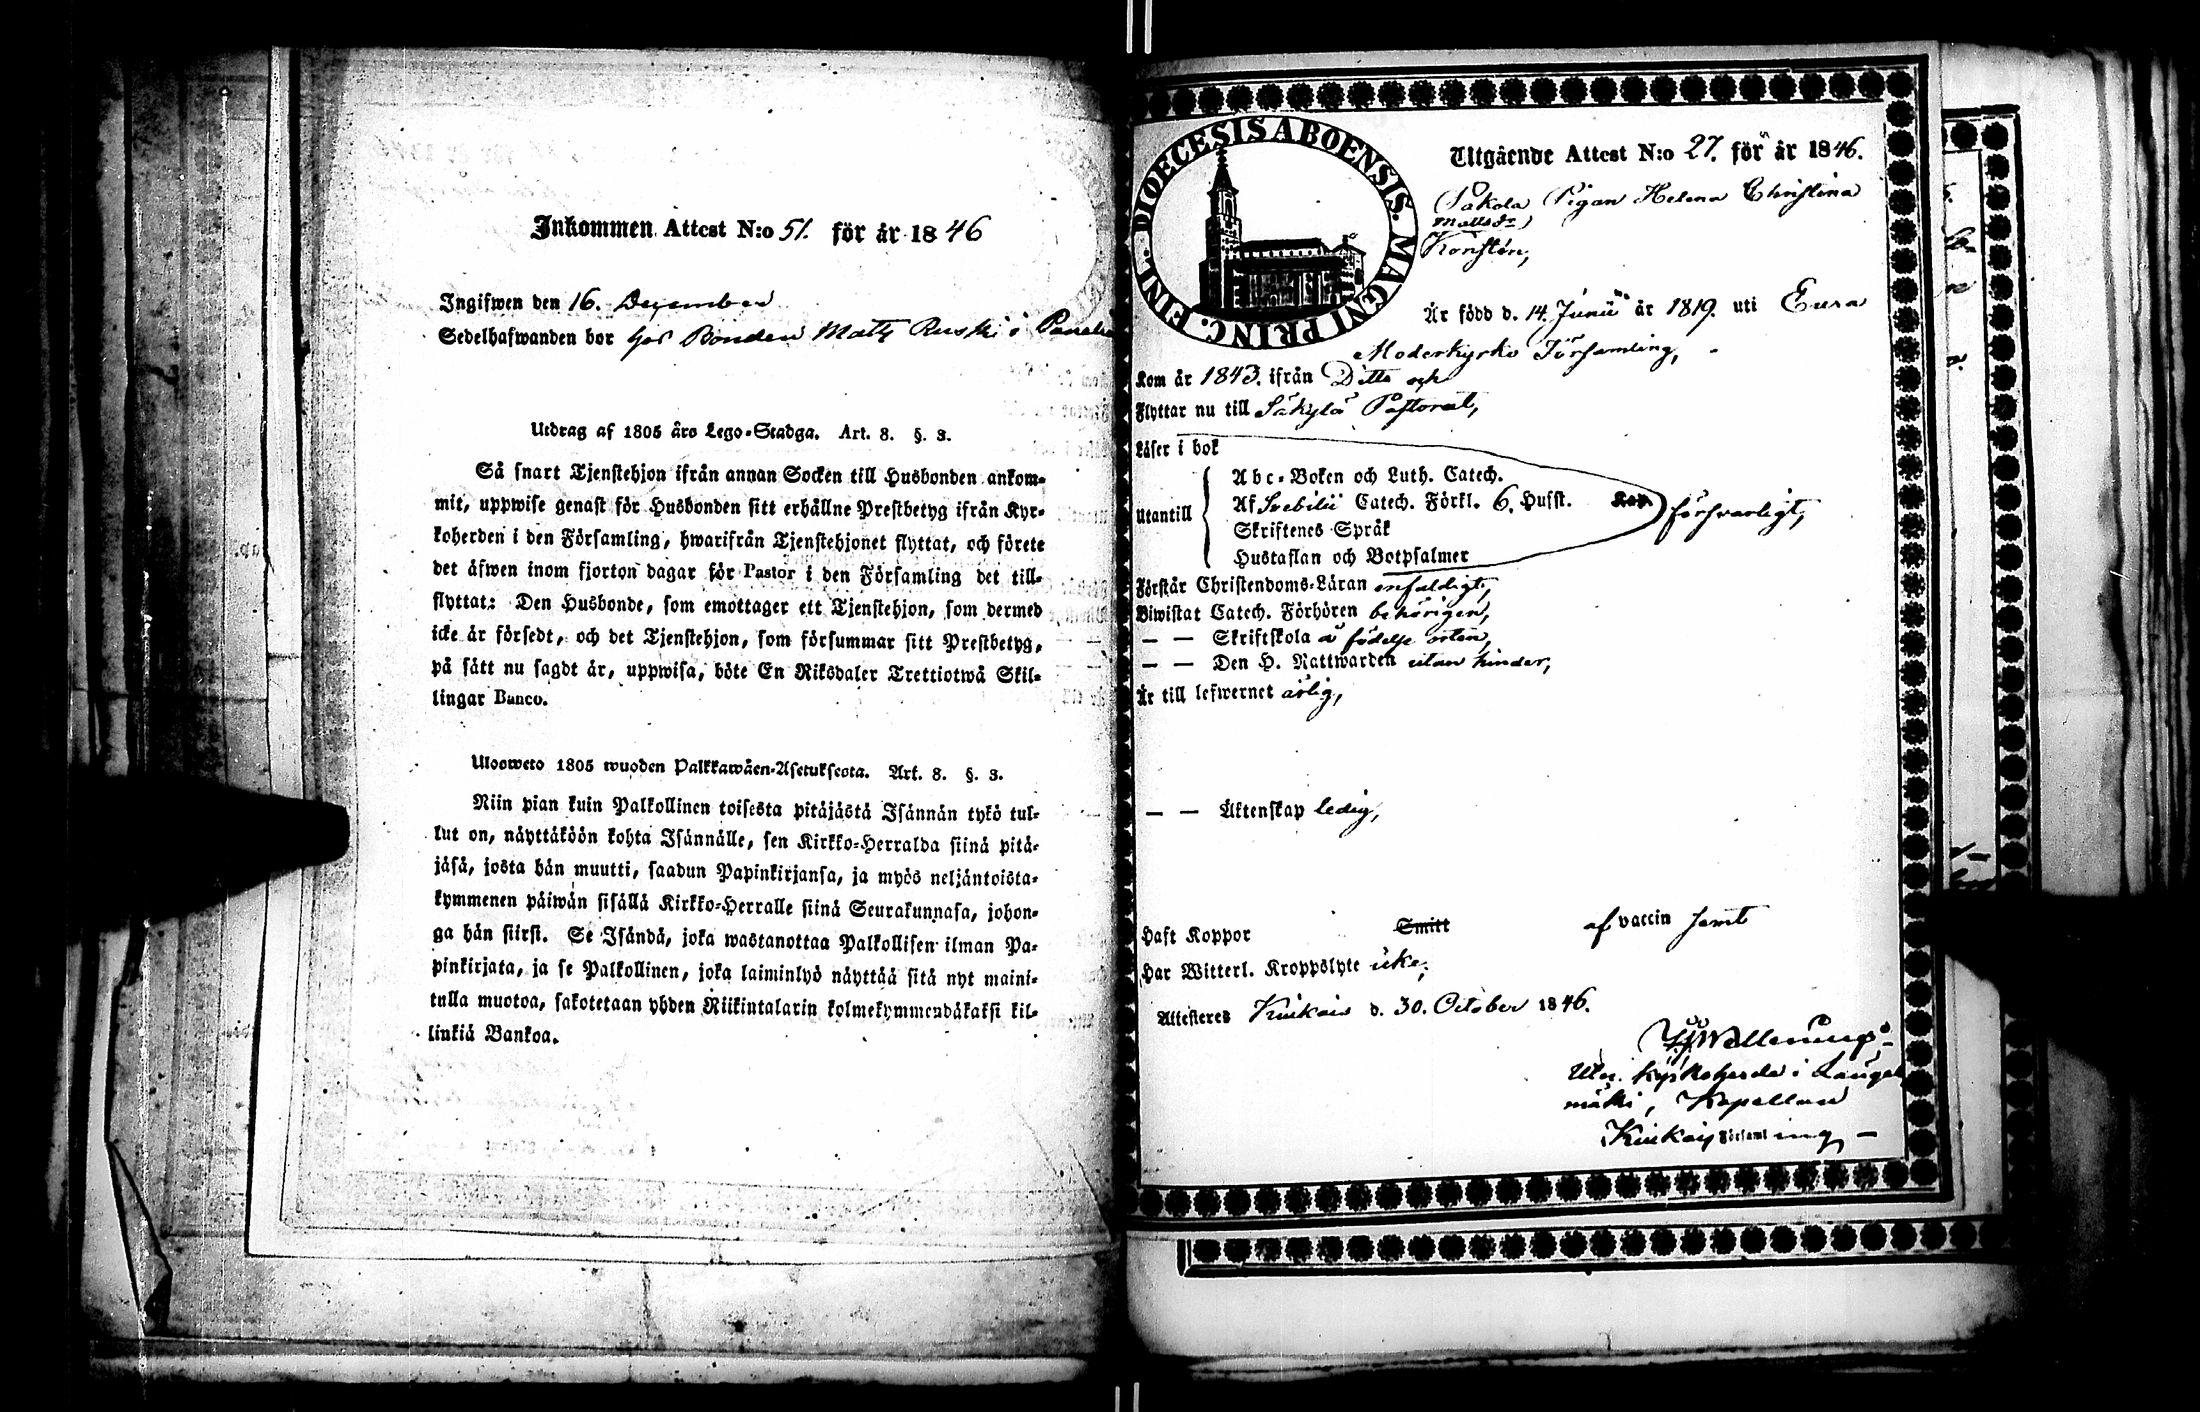 Inkommen Attest N:o 51. för år 1846
Ingifwen den 16. December
Sedelhafwanden bor hos Bonden Matts Ruski i Panelia
Utdrag af 1805 års Lego-Stadga. Art. 8. §. 3.
Så snart Tjenstehjon ifrån annan Socken till Husbonden ankom-
mit, uppwise genast för Husbonden sitt erhållne Prestbetyg ifrån Kyr-
koherden i den Församling, hwarifrån Tjenstehjonet flyttat, och förete
det äfwen inom fjorton dagar för Pastor i den Församling det till-
flyttat: Den Husbonde, som emottager ett Tjenstehjon, som dermed
icke är försedt, och det Tjenstehjon, som försummar sitt Prestbetyg,
på sätt nu sagdt är, uppwisa, böte En Riksdaler Trettiotwå Skil-
lingar Banco.
Ulosweto 1805 wuoden Palkkawäen-Asetuksesta. Art. 8. §. 3.
Niin pian kuin Palkollinen toisesta pitäjästä Isännän tykö tul-
lut on, näyttäköön kohta Isännälle, sen Kirkko-Herralda siinä pitä-
jäsä, josta hän muutti, saadun Papinkirjansa, ja myös neljäntoista-
kymmenen päiwän sisällä Kirkko-Herralle siinä Seurakunnasa, johon-
ga hän siirsi. Se Isändä, joka wastanottaa Palkollisen ilman Pa-
pinkirjata, ja se Palkollinen, joka laiminlyö näyttää sitä nyt maini-
tulla muotoa, sakotetaan yhden Riikintalarin kolmekymmendäkaksi kil-
linkiä Bankoa.
DIOECESIS ABOENSIS. MAGNI PRINC. FINL.
Utgående Attest N:o 27. för år 1846.
Pigan Helena Christina
Mattsdr
Är född d. 14. Junii år 1819. uti Eura
Moderkyrko Församling,
Kom år 1843. ifrån Ditto och
Flyttar nu till Säkylä Pastorat,
Läser i bok
Abc-Boken och Luth. Catech.
Utantill Af Svebilii Catech. Förkl. 6. Hufst. Kap. försvarligt,
Skriftenes Språk
Hustaflan och Botpsalmer
Förstår Christendoms-Läran enfaldigt,
Biwistat Catech. Förhören behörigen,
— — Skriftskola å födelse orten,
— — Den H. Nattwarden utan hinder,
Är till lefwernet ärlig,
— — Äktenskap ledig,
Haft Koppor Smitt af vaccin samt
Har Witterl. Kroppslyte icke;
Attesteres Kiukais d. 30. October 1846.
Kyrkoherde i Längel
mäki, Kapellan
Kiukais Församling —